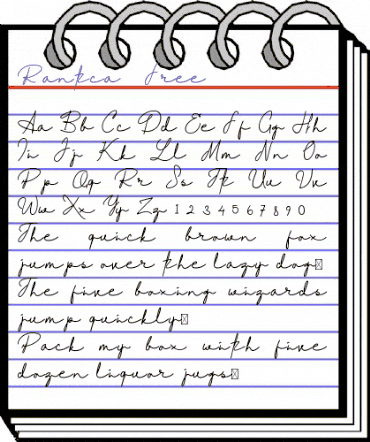 Rantca Free
Aa Bb Cc Dd Ee Ff Gg Hh
Ii Jj Kk Ll Mm Nn Oo
Pp Qq Rr Ss Tt Uu Vv
Ww Xx Yy Zz 1 2 3 4 5 6 7 8 9 0
The quick brown fox
jumps over the lazy dog▯
The five boxing wizards
jump quickly▯
Pack my box with five
dozen liquor jugs▯